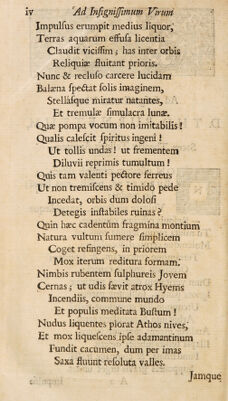 iv Ad Insignissimum Virum
Impulsus erumpit medius liquor,
Terras aquarum effusa licentia
Claudit vicissim; has inter orbis
Reliquiæ fluitant prioris.
Nunc & recluso carcere lucidam
Balæna spectat solis imaginem,
Stellasque miratur natantes,
Et tremulæ simulacra lunæ.
Quæ pompa vocum non imitabilis!
Qualis calescit spiritus ingenî!
Ut tollis undas! ut frementem
Diluvii reprimis tumultum!
Quis tam valenti pectore ferreus
Ut non tremiscens & timido pede
Incedat, orbis dum dolosi
Detegis instabiles ruinas?
Quin hæc cadentûm fragmina montium
Natura vultum sumere simplicem
Coget refingens, in priorem
Mox iterum reditura formam.
Nimbis rubentem sulphureis Jovem
Cernas; ut udis sævit atrox Hyems
Incendiis, commune mundo
Et populis meditata Bustum!
Nudus liquentes plorat Athos nives,
Et mox liquescens ipse adamantinum
Fundit cacumen, dum per imas
Saxa fluunt resoluta valles.
Jamque